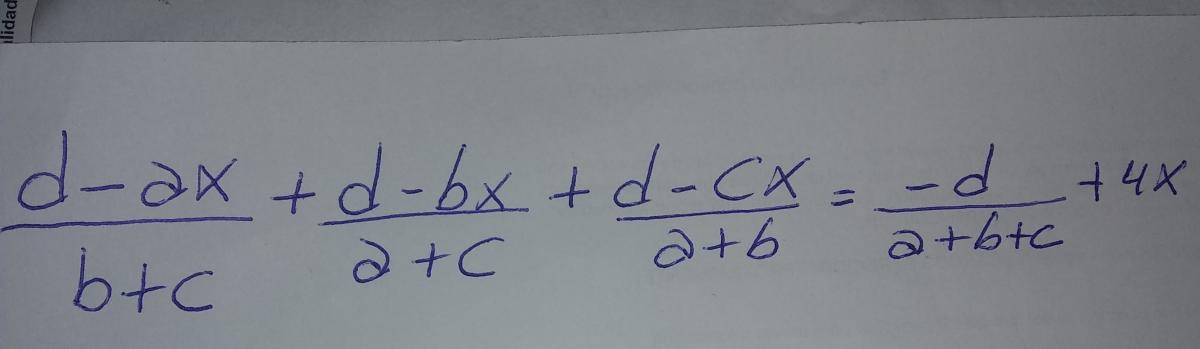 lidad
d-ax/b+c + d-bx/a+c + d-cx/a+b = -d/a+b+c + 4x